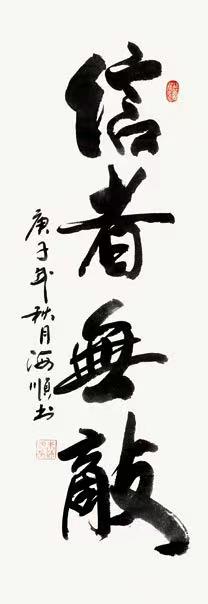 信者無敵
庚子年秋月海順书